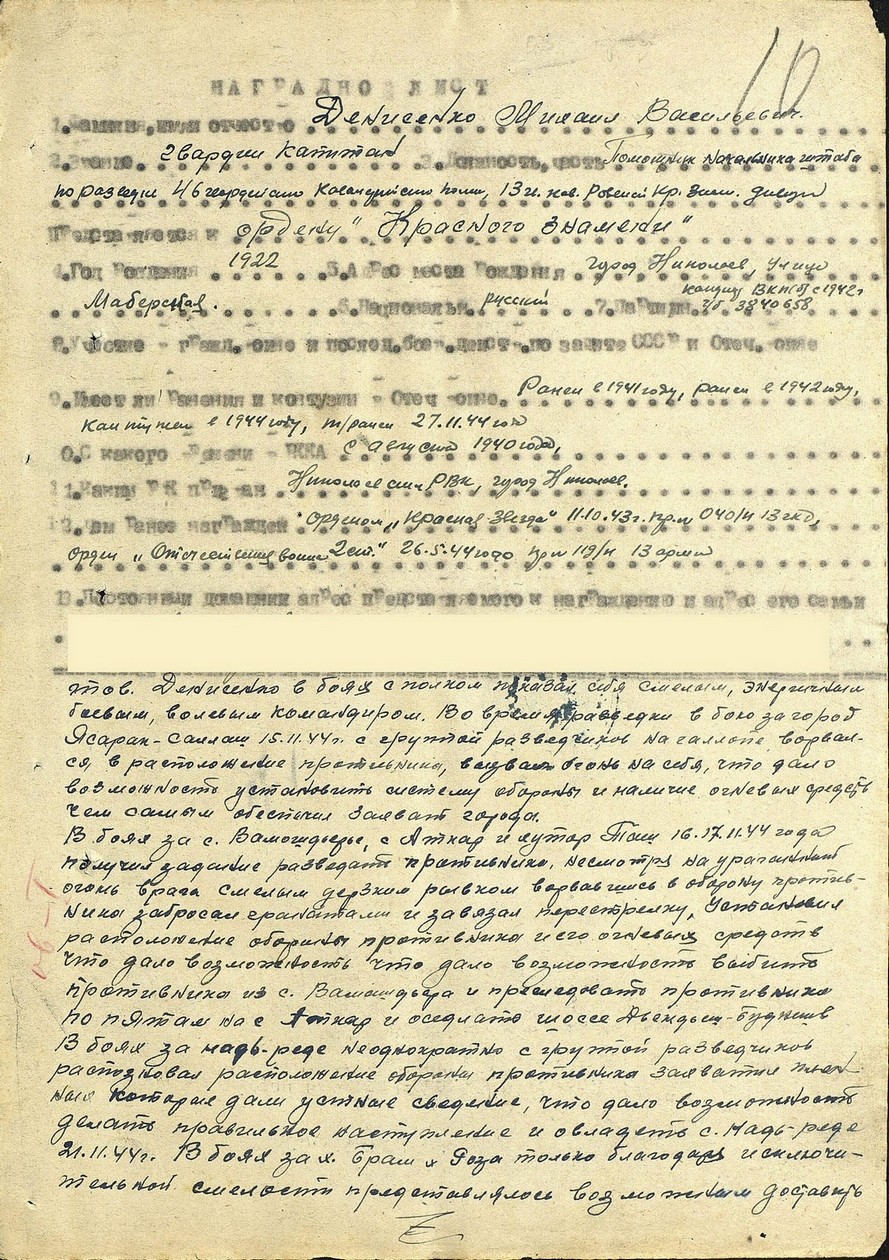 10
НАГРАДНО ЛИСТ
1. Фамилия, имя отчество Денисенко Михаил Васильевич.
2. Звание. Гвардии Капитан 3. Должность, часть Помощник начальника штаба
по разведки 46 гвардейского Кавалерийского полка, 13 гв. кав. Ровенской Кр. Знам. дивизи
Представляется к ордену "Красного Знамени"
1922
4. Год Рождения 5. Адрес места Рождения город Николаев, Улица
кандид ВКП(б) с 1942г
Маберская. 6. Национальн. русский 7. Партийн. 3840658
8. Участие гражд. войне и послед. боев. дейст. по защите СССР и Отеч. войне
9. Имеет ли Ранения и контузии Отеч войне. Ранен в 1941 году, ранен в 1942 году,
контужен в 1944 году, т/ранен 27.11.44 года
0. С какого времени РККА с августа 1940 года,
11. Каким РВК призван Николаевским РВК, город Николаев.
12. Чем Ранее награжден Орденом "Красная Звезда" 11.10.43г. пр. № 040/н 13 гкд,
орден "Отечественная война 2 ст." 26.5.44 года пр № 119/н 13 армии
13. Постоянный домашний адрес представляемого к награждению и адрес его семьи
тов. Денисенко в боях с полком показал себя смелым, энергичным
боевым, волевым командиром. Во время разведки в бою за город
Ясарак-саллаш 15.11.44г. с группой разведчиков на галлопе ворвал-
ся в расположение противника, вызвал огонь на себя, что дало
возможность установить систему обороны и наличие огневых средств
чем самым обеспечил захват города.
В боях за с. Вамошдьерк, с Аткар и хутор Таш 16.17.11.44 года
получил задание разведать противника, несмотря на ураганный
огонь врага смелым дерзким рывком ворвавшись в оборону против-
ника забросал гранатами и завязал перестрелку, Установил
расположение обороны противника и его огневых средств
что дало возможность что дало возможность выбить
противника из с. Вамошдьера и преследовать противника
по пятам на с Аткар и оседлать шоссе Дьендьеш-Будапешт
В боях за надь-реде неоднократно с группой разведчиков
распозновал расположение обороны противника захватил плен-
ных которые дали устные сведение, что дало возможность
делать правильное наступление и овладеть с. Надь-реде
21.11.44г. В боях за х. Брам х Роза только благодаря исключи-
тельной смелости представлялось возможным доставить